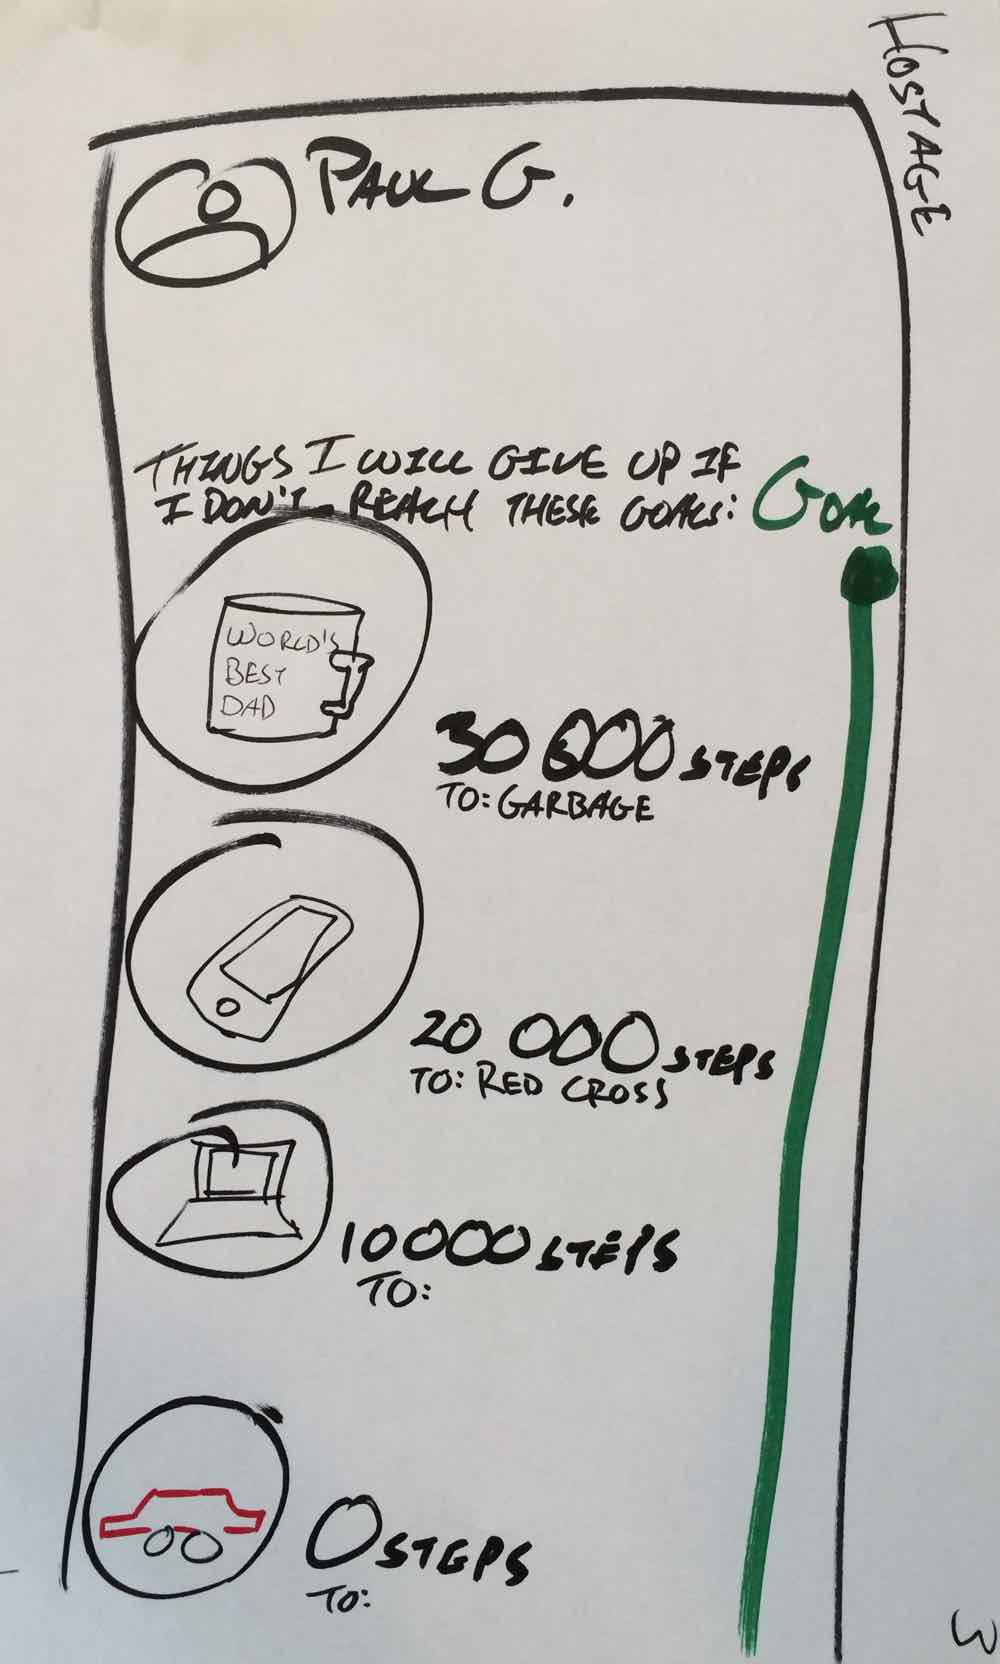 HOSTAGE
PAUL G.
THINGS I WILL GIVE UP IF
I DON'T REACH THESE GOALS:
GOAL
WORLD'S
BEST
DAD
30 000 STEPS
TO: GARBAGE
20 000 STEPS
TO: RED CROSS
10000 STEPS
TO:
0 STEPS
TO:
3